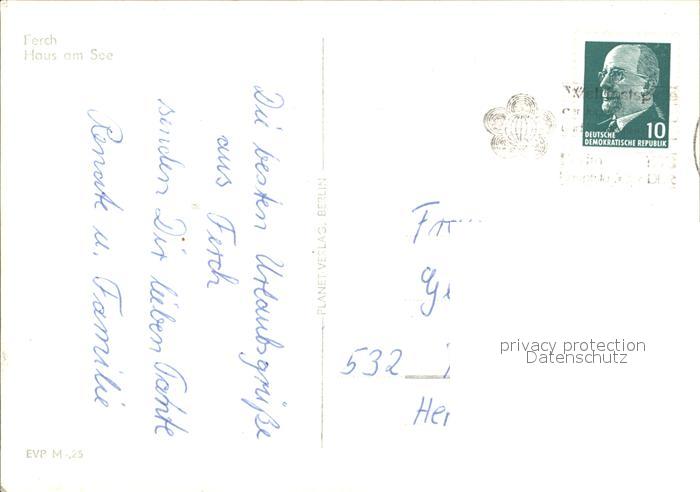 Ferch
Haus am See
Die besten Urlaubsgrüße
aus Ferch
senden Dir lieben Tante
Renate u. Familie
PLANET-VERLAG, BERLIN
EVP M -,25
DEUTSCHE
DEMOKRATISCHE REPUBLIK
10
532
privacy protection
Datenschutz